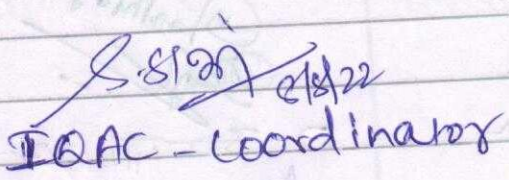 8/8/22
IQAC - Coordinator